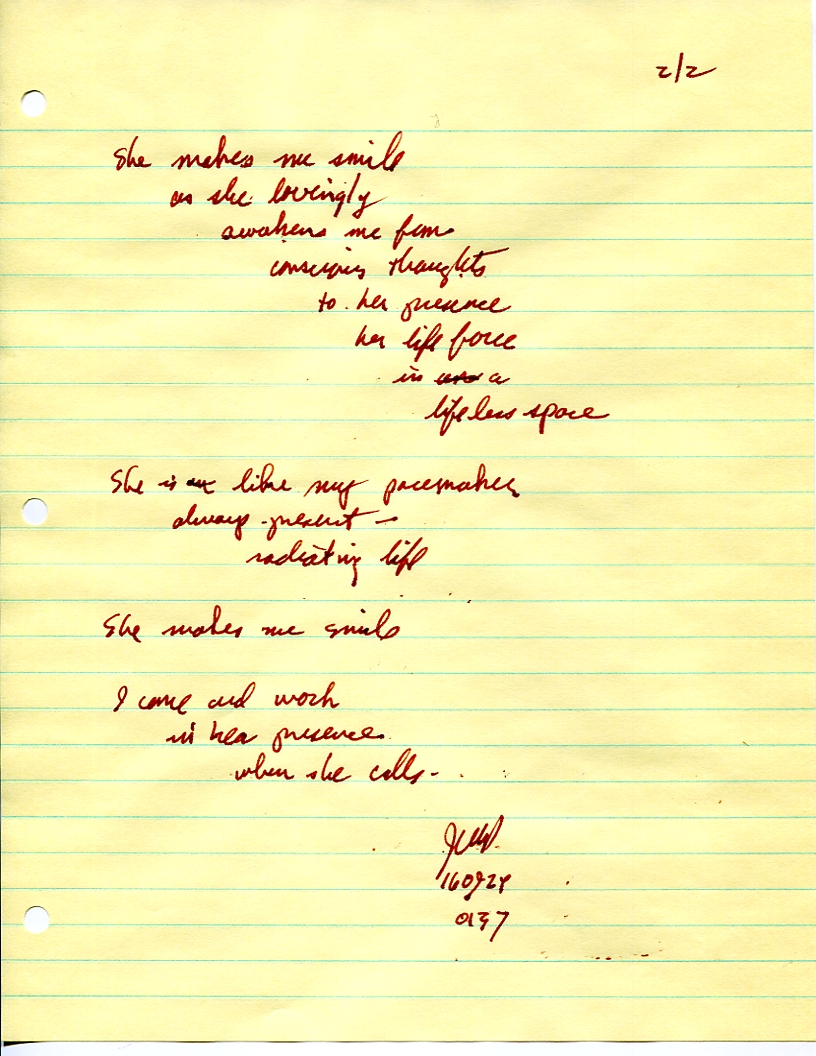 2/2
She makes me smile
as she lovingly
awakens me from
conscious thoughts
to her presence
her life force
in a
lifeless space
She is like my pacemaker
always present -
radiating life
She makes me smile
I come and work
in her presence
when she calls -
160924
0137